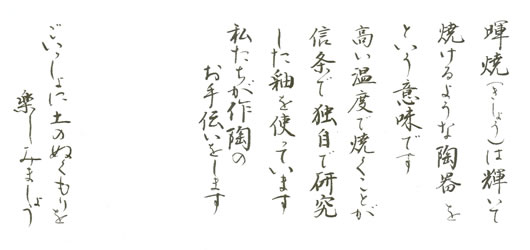 暉焼(きしょう)は輝いて
焼けるような陶器を
という意味です
高い温度で焼くことが
信条で独自で研究
した釉を使っています
私たちが作陶の
お手伝いをします
ごいっしょに土のぬくもりを
楽しみましょう